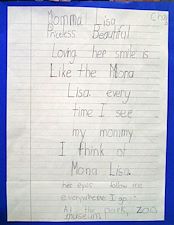 Momma Lisa
Priceless Beautiful
Loving her smile is
Like the Mona
Lisa every
time I see
my mommy
I think of
Mona Lisa.
her eyes follow me
everywhere I go
At the park, zoo
museum